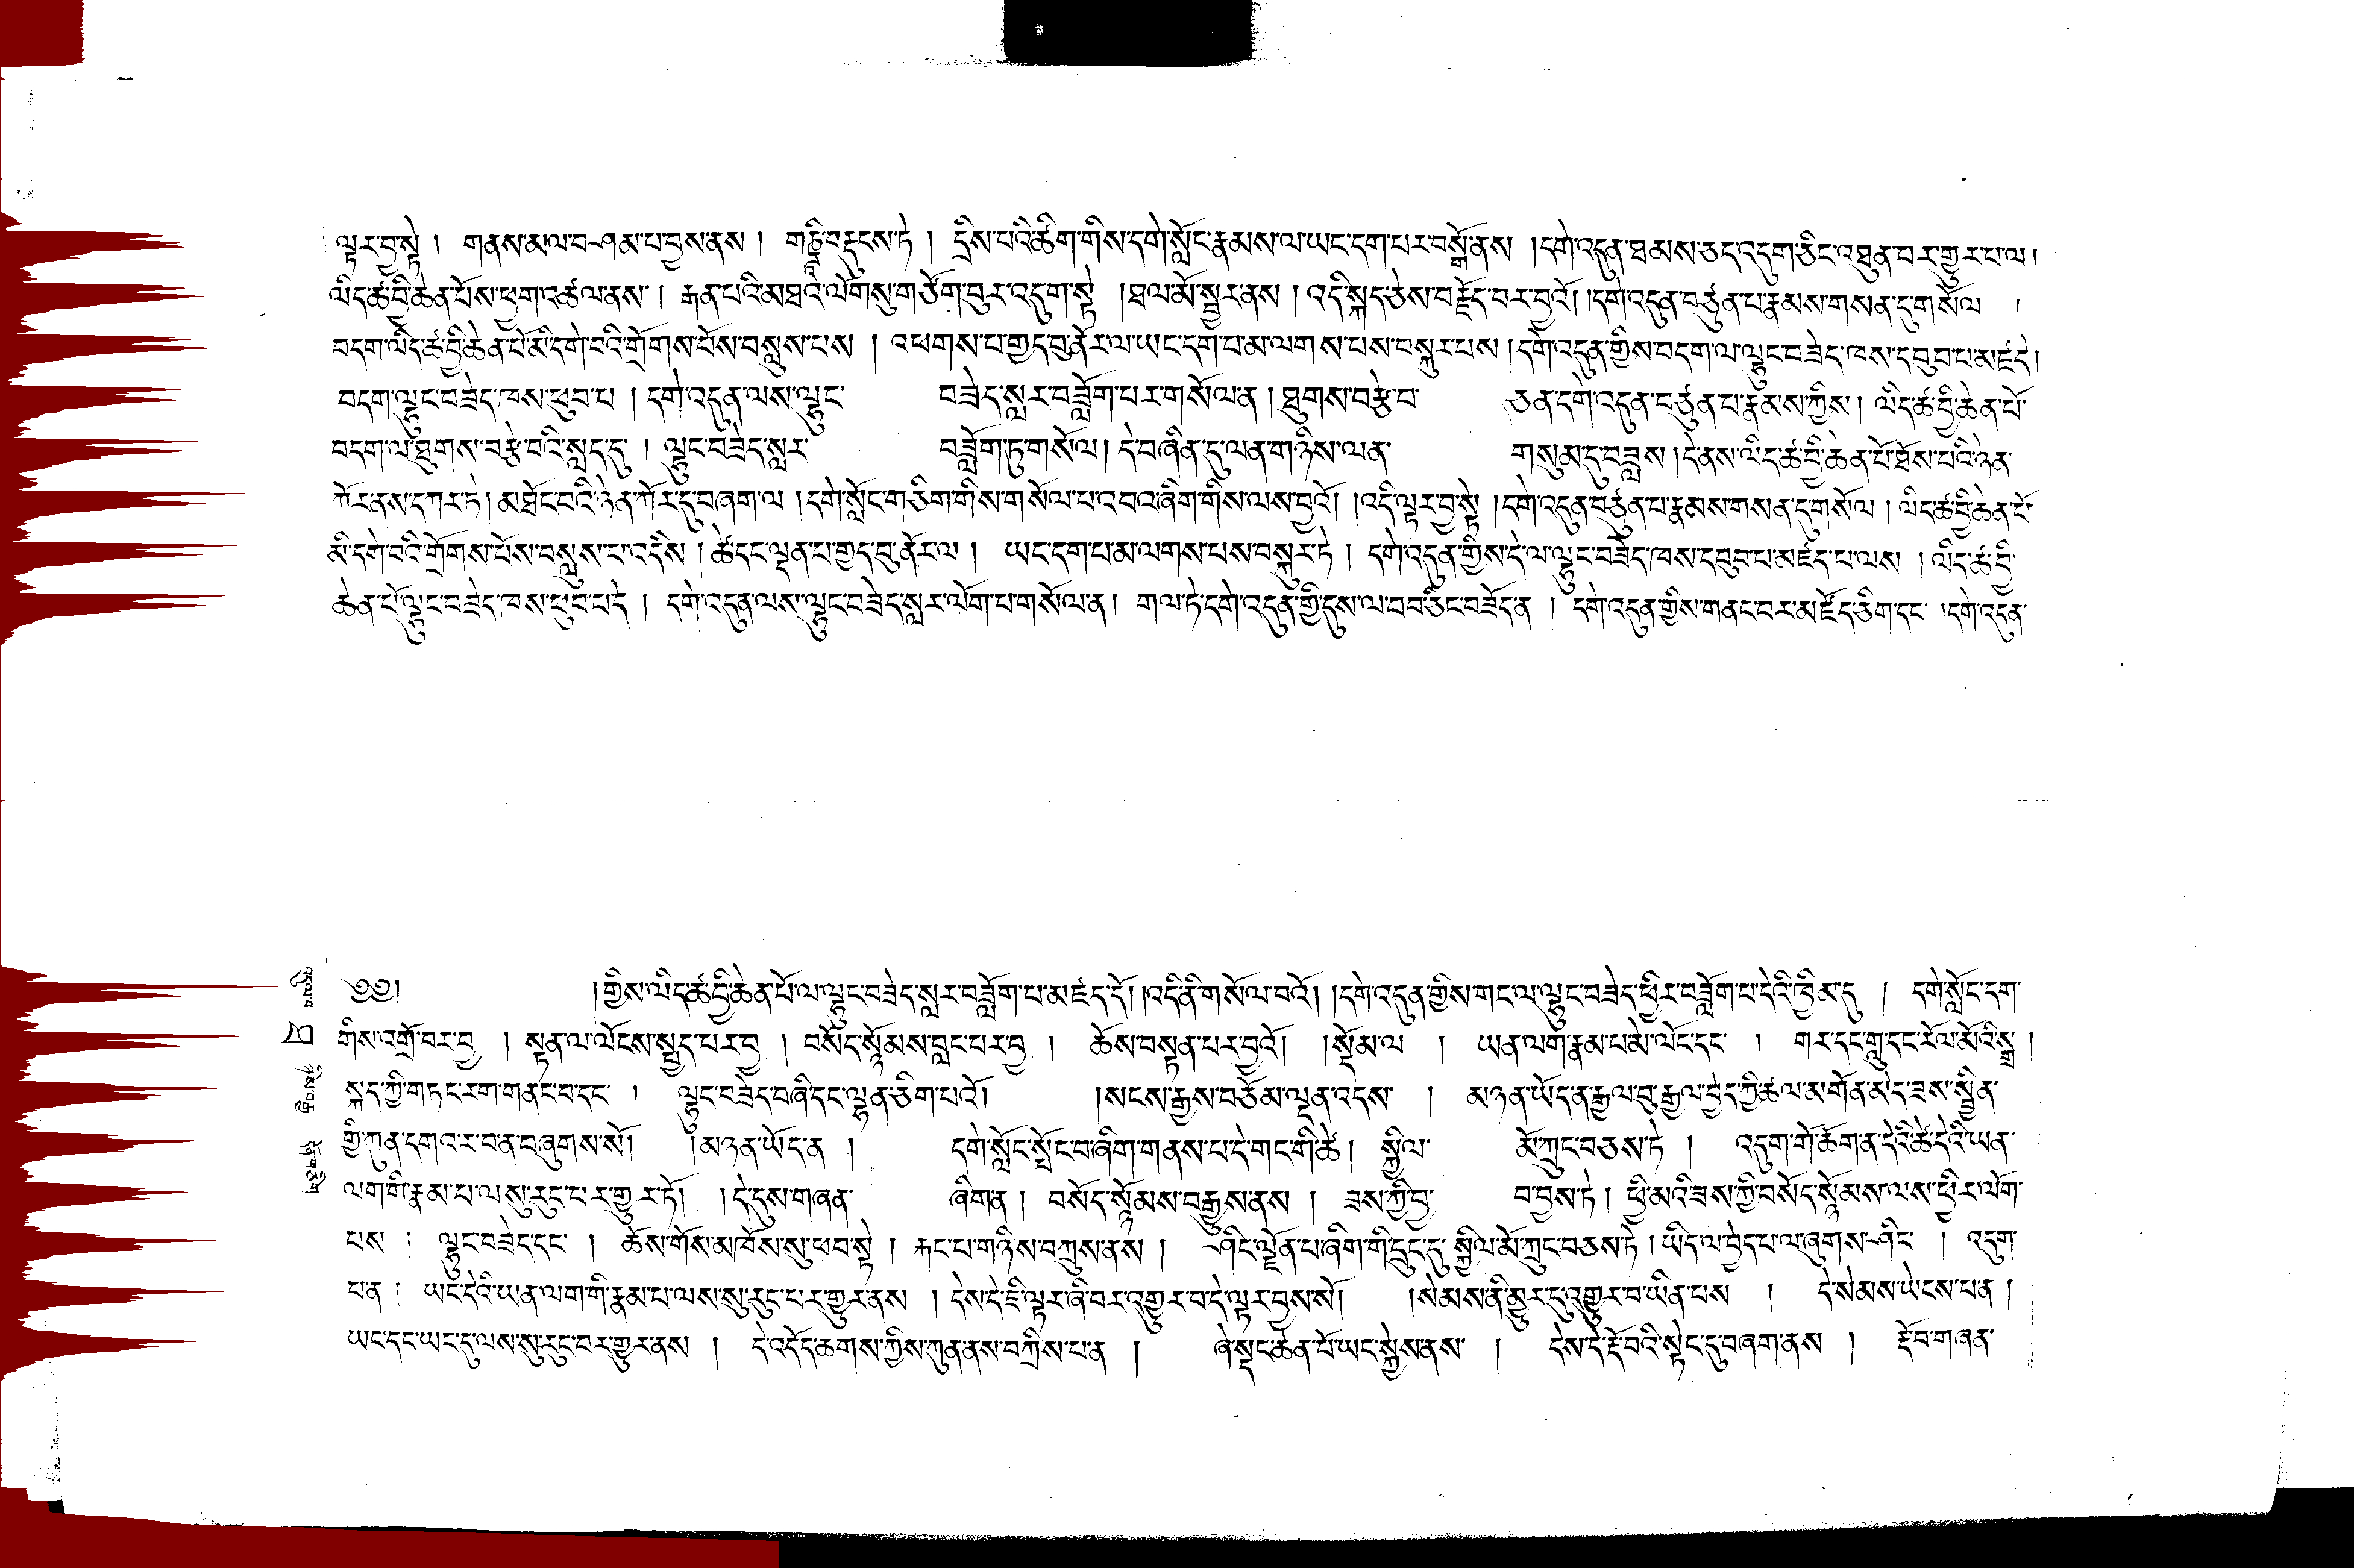 ལྟར་བྱ་སྟེ། གནས་མལ་བཤམ་པ་བྱས་ནས། གཎྜི་བརྡུངས་ཏེ། དྲིས་པའི་ཚིག་གིས་དགེ་སློང་རྣམས་ལ་ཡང་དག་པར་བསྒོ་ནས །དགེ་འདུན་ཐམས་ཅད་འདུག་ཅིང་འཐུན་པར་གྱུར་པ་ལ།
ལི་ད་ཚ་བྱི་ཆེན་པོས་ཕྱག་འཚལ་ནས། རྒན་པའི་མཐའ་ལོགས་སུ་གཙོག་བུར་འདུག་སྟེ །ཐལ་མོ་སྦྱར་ནས། འདི་སྐད་ཅེས་བརྗོད་པར་བྱའོ། །དགེ་འདུན་བཙུན་པ་རྣམས་གསན་དུ་གསོལ །
བདག་ལི་ད་ཚ་བྱི་ཆེན་པོ་མི་དགེ་བའི་གྲོགས་པོས་བསླུས་པས། འཕགས་པ་གྱད་བུ་ནོར་ལ་ཡང་དག་པ་མ་ལགས་པས་བསྐུར་པས།དགེ་འདུན་གྱིས་བདག་ལ་ལྷུང་བཟེད་ཁས་དབུབ་པ་མཛད་དེ།
བདག་ལྷུང་བཟེད་ཁས་ཕུབ་པ། དགེ་འདུན་ལས་ལྷུང་ བཟེད་སླར་བཟློག་པར་གསོལ་ན། ཐུགས་བརྩེ་བ་ ཅན་དགེ་འདུན་བཙུན་པ་རྣམས་ཀྱིས། ལི་ད་ཚ་བྱི་ཆེན་པོ་
བདག་ལ་ཐུགས་བརྩེ་བའི་སླད་དུ། ལྷུང་བཟེད་སླར་ བཟློག་ཏུ་གསོལ། དེ་བཞིན་དུ་ལན་གཉིས་ལན་ གསུམ་དུ་བཟླས།དེ་ནས་ལི་ད་ཚ་བྱི་ཆེན་པོ་ཐོས་པའི་ཉེན་
ཀོར་ནས་དཀར་ཏེ། མཐོང་བའི་ཉེན་ཀོར་དུ་བཞག་ལ །དགེ་སློང་གཅིག་གིས་གསོལ་པ་འབའ་ཞིག་གིས་ལས་བྱའོ། །འདི་ལྟར་བྱ་སྟེ །དགེ་འདུན་བཙུན་པ་རྣམས་གསན་དུ་གསོལ། ལི་ད་ཚ་བྱི་ཆེན་པོ་
མི་དགེ་བའི་གྲོགས་པོས་བསླུས་པ་འདིས། ཚེ་དང་ལྡན་པ་གྱད་བུ་ནོར་ལ། ཡང་དག་པ་མ་ལགས་པས་བསྐུར་ཏེ། དགེ་འདུན་གྱིས་དེ་ལ་ལྷུང་བཟེད་ཁས་དབུབ་པ་མཛད་པ་ལས །ལི་ད་ཚ་བྱི་
ཆེན་པོ་ལྷུང་བཟེད་ཁས་ཕུབ་པ་དེ། དགེ་འདུན་ལས་ལྷུང་བཟེད་སླར་ལོག་པ་གསོལ་ན། གལ་ཏེ་དགེ་འདུན་གྱི་དུས་ལ་བབ་ཅིང་བཟོད་ན། དགེ་འདུན་གྱིས་གནང་བར་མཛོད་ཅིག་དང །དགེ་འདུན་
༄༅། །གྱིས་ལི་ད་ཚ་བྱི་ཆེན་པོ་ལ་ལྷུང་བཟེད་སླར་བཟློག་པ་མཛད་དོ། །འདི་ནི་གསོལ་བའོ། །དགེ་འདུན་གྱིས་གང་ལ་ལྷུང་བཟེད་ཕྱིར་བཟློག་པ་དེའི་ཁྱིམ་དུ། དགེ་སློང་དག་
གིས་འགྲོ་བར་བྱ། སྟན་ལ་ལོངས་སྤྱད་པར་བྱ། བསོད་སྙོམས་བླང་པར་བྱ། ཆོས་བསྟན་པར་བྱའོ། །སྡོམ་ལ། ཡན་ལག་རྣམ་པ་མེ་ལོང་དང་། གར་དང་གླུ་དང་རོལ་མོའི་སྒྲ།
སྐད་ཀྱི་གཏང་རག་གནང་བ་དང་། ལྷུང་བཟེད་བཞི་དང་ལྷན་ཅིག་པའོ། །སངས་རྒྱས་བཅོམ་ལྡན་འདས་། མཉན་ཡོད་ན་རྒྱལ་བུ་རྒྱལ་བྱེད་ཀྱི་ཚལ་མགོན་མེད་ཟས་སྦྱིན་
གྱི་ཀུན་དགའ་ར་བ་ན་བཞུགས་སོ། །མཉན་ཡོད་ན། དགེ་སློང་སྤོང་བ་ཞིག་གནས་པ་དེ་གང་གི་ཚེ། སྐྱིལ་ མོ་ཀྲུང་བཅས་ཏེ། འདུག་གེ་ཚོག་ན་དེའི་ཚེ་དེའི་ཡན་
ལག་གི་རྣམ་པ་ལ་སུ་རུང་པར་གྱུར་ཏོ། །དེ་དུས་གཞན་ ཞིག་ན། བསོད་སྙོམས་བརྒྱུས་ནས། ཟས་ཀྱི་བྱ་ བ་བྱས་ཏེ། ཕྱི་མའི་ཟས་ཀྱི་བསོད་སྙོམས་ལས་ཕྱིར་ལོག་
པས། ལྷུང་བཟེད་དང་། ཆོས་གོས་མཁོས་སུ་ཕབ་སྟེ། རྐང་པ་གཉིས་བཀྲུས་ནས། ཤིང་ལྗོན་པ་ཞིག་གི་དྲུང་དུ་སྐྱིལ་མོ་ཀྲུང་བཅས་ཏེ། ཡིད་ལ་བྱེད་པ་ལ་ཞུགས་ཤིང། འདུག་
པ་ན། ཡང་དེའི་ཡན་ལག་གི་རྣམ་པ་ལས་སུ་རུང་པར་གྱུར་ནས། དེས་དེ་ཇི་ལྟར་ཞི་བར་འགྱུར་བ་དེ་ལྟར་བྱས་སོ། །སེམས་ནི་མྱུར་དུ་འགྱུར་བ་ཡིན་པས། དེ་སེམས་ཡེངས་པ་ན།
ཡང་དང་ཡང་དུ་ལས་སུ་རུང་བར་གྱུར་ནས། དེ་འདོད་ཆགས་ཀྱིས་ཀུན་ནས་བཀྲིས་པ་ན། ཞེ་སྡང་ཆེན་པོ་ཡང་སྐྱེས་ནས་། དེས་དེ་རྡོ་བའི་སྟེང་དུ་བཞག་ནས། རྡོ་བ་གཞན་